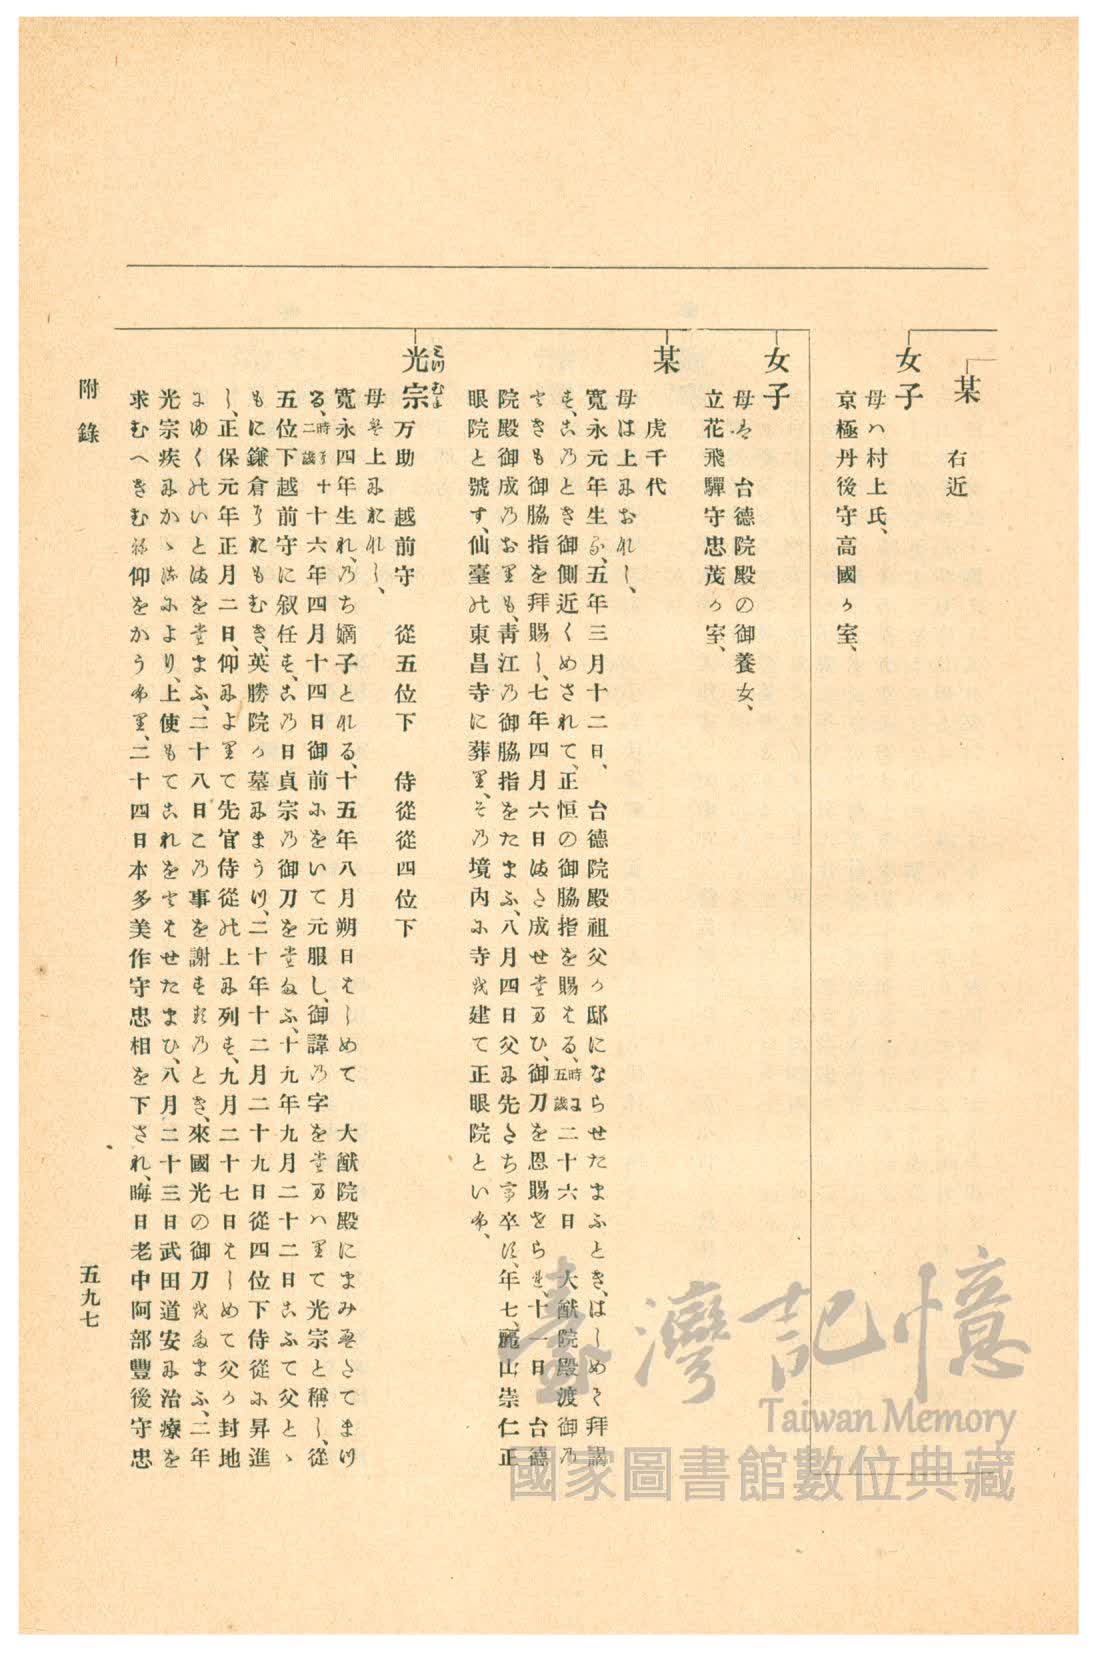 某
右近
女子
母ハ村上氏、
京極丹後守高國か室、
女子
母は 台德院殿の御養女、
立花飛驒守忠茂か室、
某
虎千代
母は上におなし、
寬永元年生る、五年三月十二日、 台德院殿祖父か邸にならせたまふとき、はしめて拜謁
す、このとき御側近くめされて、正恒の御脇指を賜はる、時に五歲二十六日 大猷院殿渡御の
ときも御脇指を拜賜し、七年四月六日また成せたまひ、御刀を恩賜せられ、十一日 台德
院殿御成のおりも、靑江の御脇指をたまふ、八月四日父に先たち卒す、年七、麗山崇仁正
眼院と號す、仙臺の東昌寺に葬り、その境内に寺を建て正眼院といふ、
光宗
みつ むね
万助 越前守 從五位下 侍從從四位下
母は上におなし、
寬永四年生れ、のち嫡子となる、十五年八月朔日はしめて 大猷院殿にまみえたてまつ
る、時に十二歲十六年四月十四日御前にをいて元服し、御諱の字をたまハりて光宗と稱し、從
五位下越前守に叙任す、この日貞宗の御刀をたまふ、十九年九月二十二日こふて父とゝ
もに鎌倉におもむき、英勝院か墓にまうつ、二十年十二月二十九日從四位下侍從に昇進
し、正保元年正月二日、仰によりて先官侍從の上に列す、九月二十七日はしめて父か封地
にゆくのいとまをたまふ、二十八日この事を謝するのとき、來國光の御刀をたまふ、二年
光宗疾にかゝるにより、上使もてこれをとはせたまひ、八月二十三日武田道安に治療を
求むへきむね仰をかうふり、二十四日本多美作守忠相を下され、晦日老中阿部豐後守忠
附錄
五九七
臺灣記憶
Taiwan Memory
國家圖書館數位典藏